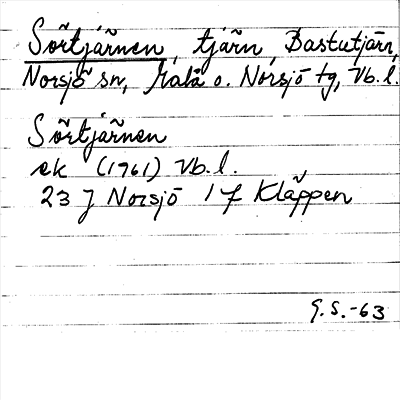 Sörtjärnen, tjärn, Bastutjärn,
Norsjö sn, Malå o. Norsjö tg, Vb.l.
Sörtjärnen
ek (1961) Vb.l.
23 J Norsjö 1 f Kläppen
G.S.-63